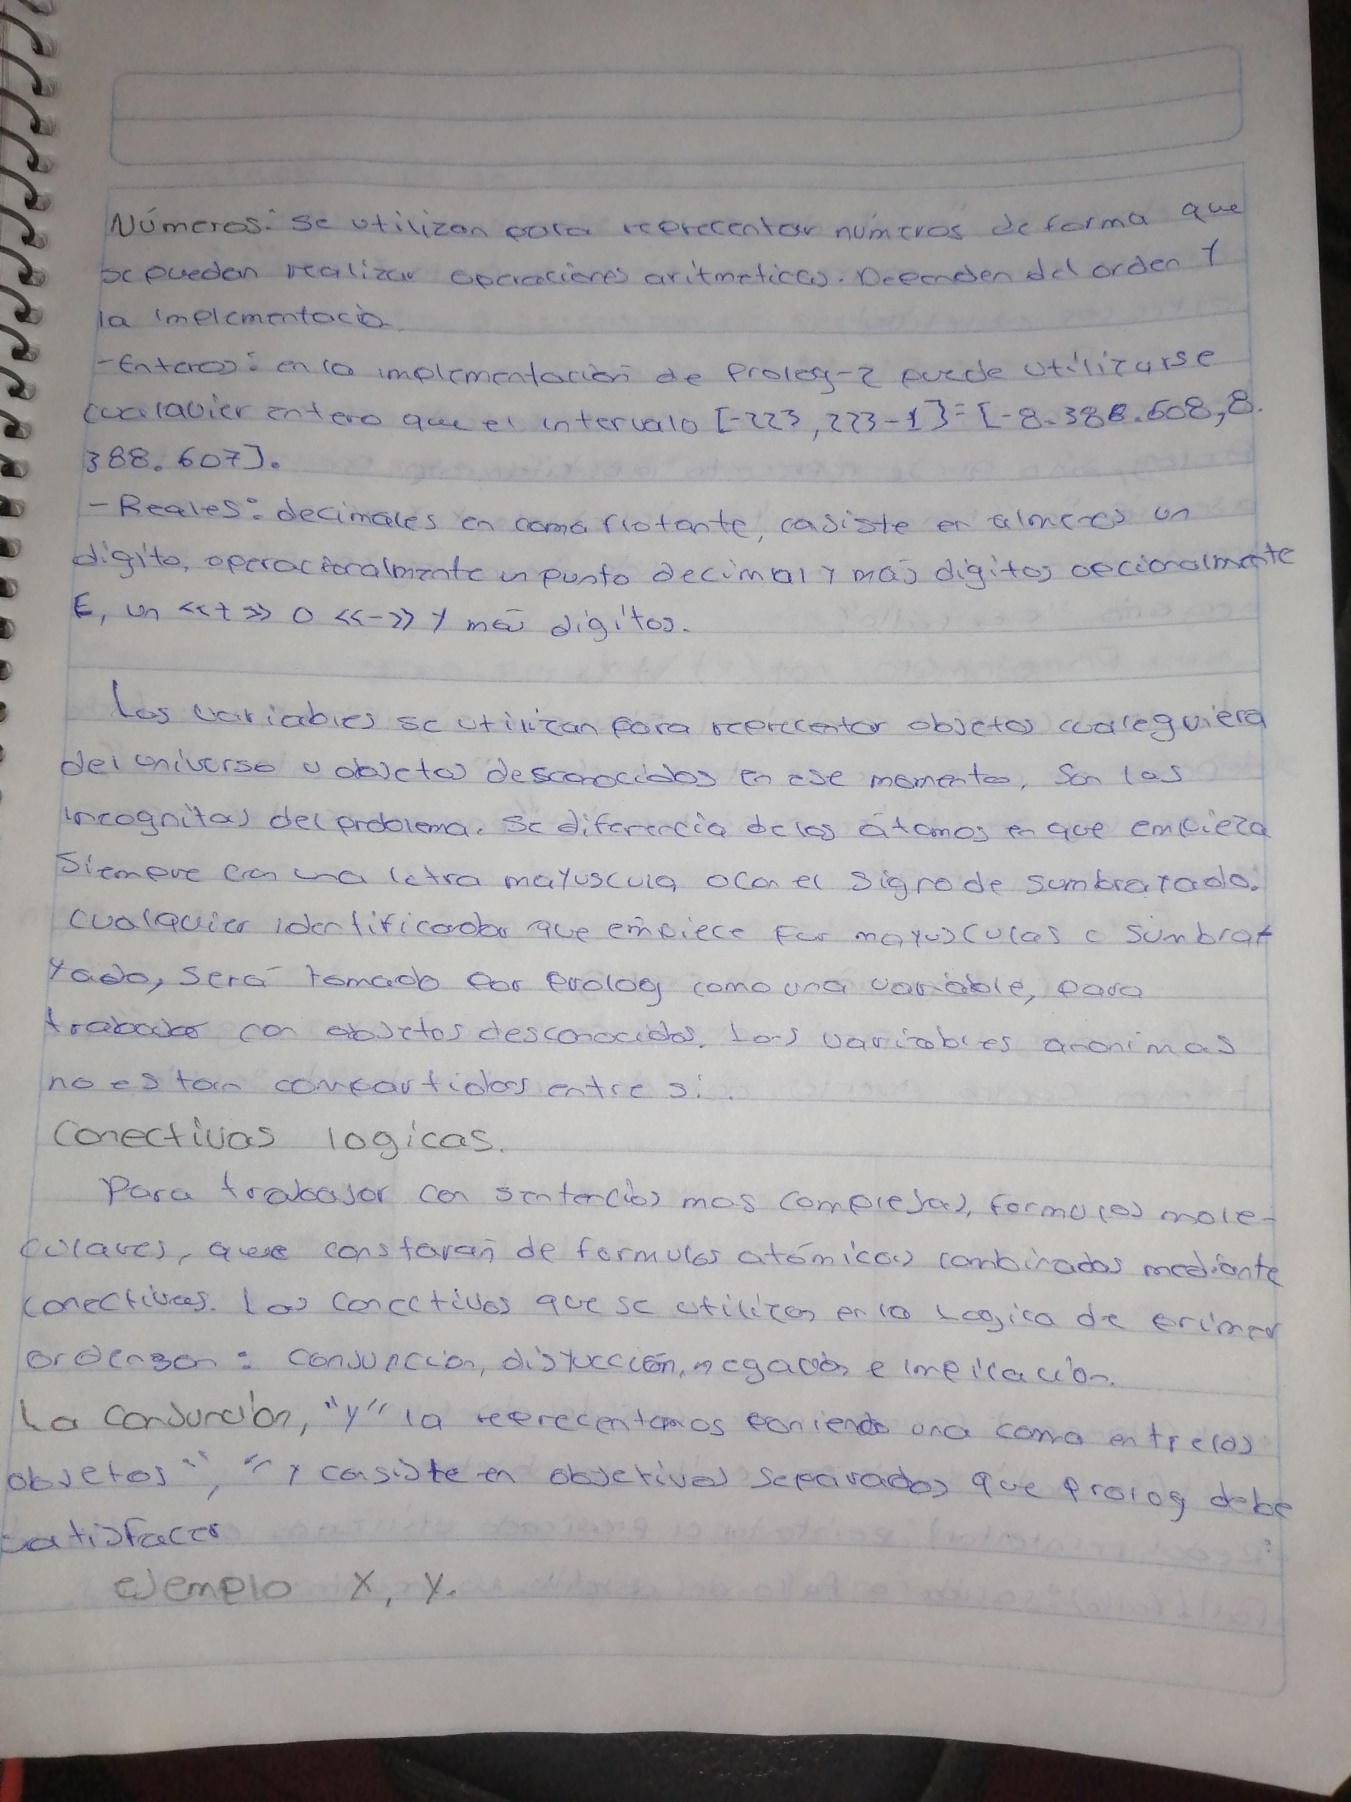 Números: se utilizan para reprecentar números de forma que
se puedan realizar operaciones aritmeticas. Dependen del orden y
la implementacio
-Enteros: en la implementación de Prolog-2 puede utilizarse
cualquier entero que el intervalo [-223, 223-1] = [-8.388.608,8.
388.607].
-Reales: decimales en coma flotante, casiste en almenos un
digito, operacionalmente un punto decimal y más digitos opcionalmente
E, un <<+>> o <<->> y más digitos.
Las variables se utilizan para reprecentar objetos cualeguiera
del universo u objetos desconocidos en ese momento, Son las
incognitas del problema. Se diferencia de los átomos en que empieza
Siempre con una letra mayuscula o con el signo de sumbrayado.
Cualquier identificador que empiece por mayusculas o sumbra
yado, será tomado por Prolog como una variable, para
trabajar con objetos desconocidos. Las variables anonimas
no estan compartidas entre si.
Conectivas logicas.
Para trabajar con sentencias mas complejas, formulas mole-
culares, que constaran de formulas atómicas combinadas mediante
conectivas. Las conectivas que se utilizan en la Logica de primer
orden son: conjuncion, disyucción, negación e implicación.
La Conjunción, "y" la reprecentamos poniendo una coma entre los
objetos ",
" y casiste en objetivos separados que Prolog debe
satisfacer
ejemplo X, Y.